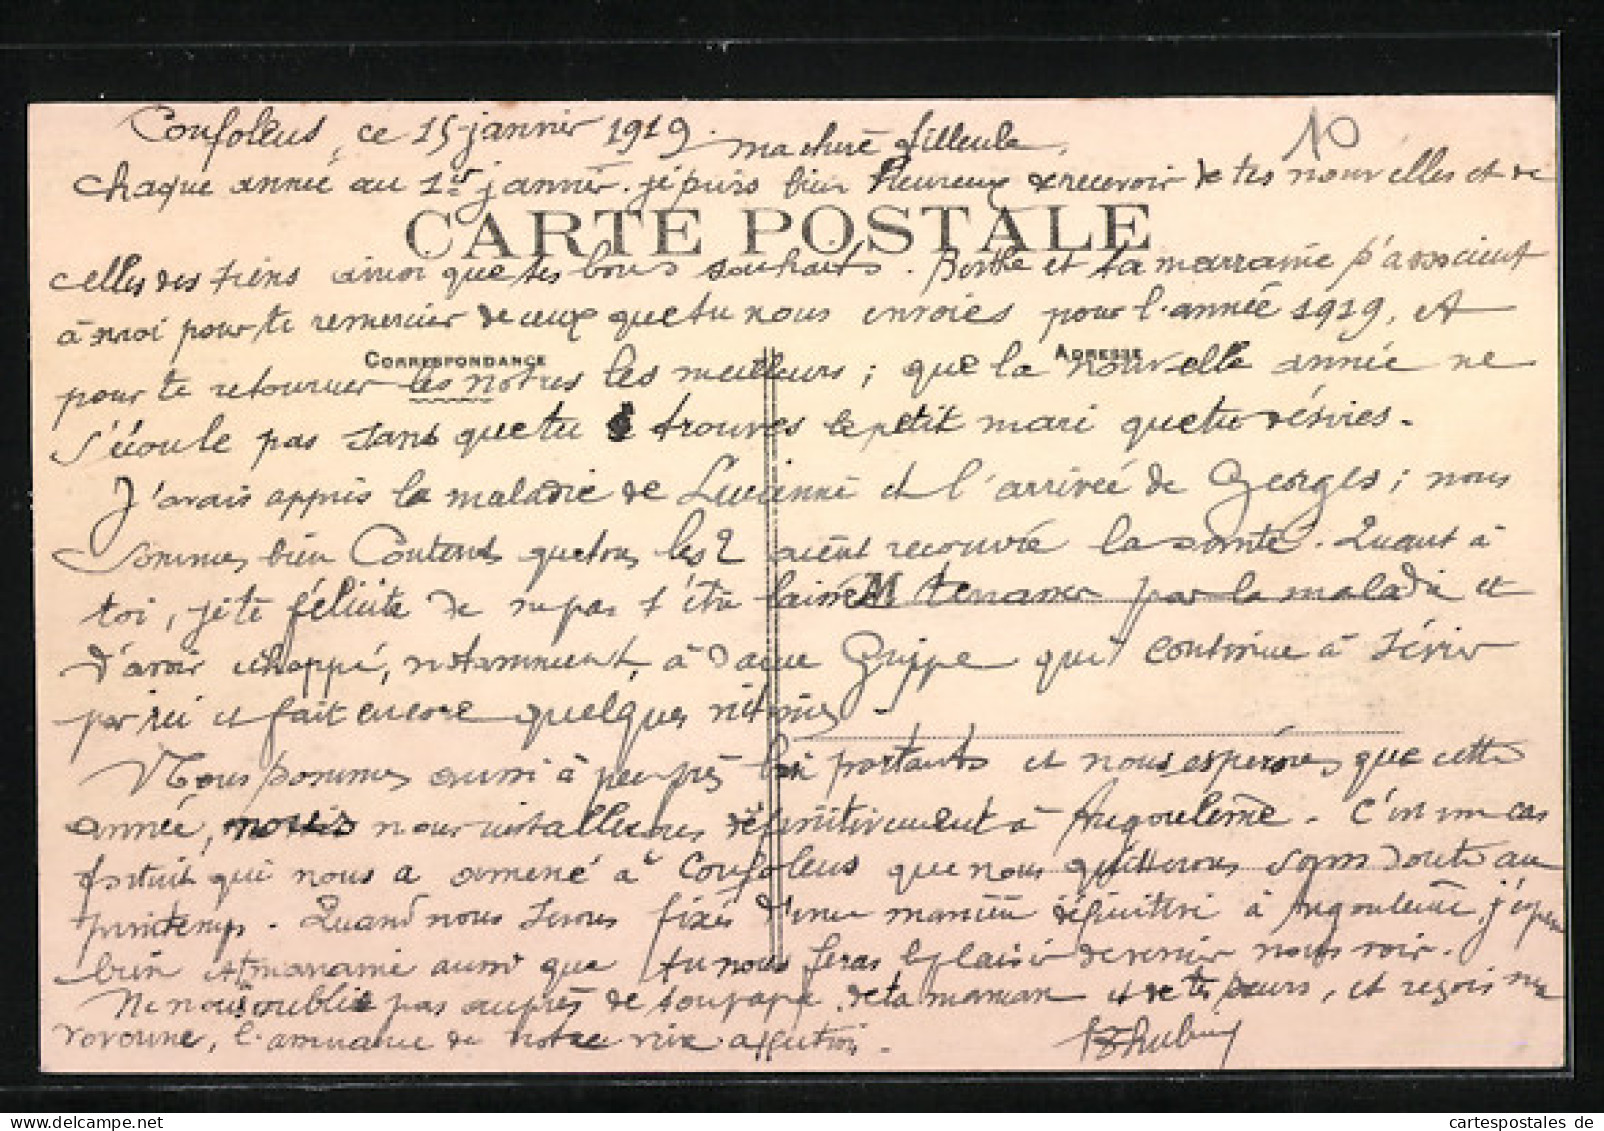 Confolens, ce 15 janvier 1919. ma chère filleule,
10
Chaque année au 1er janvier. je suis bien heureux de recevoir de tes nouvelles et de
CARTE POSTALE
celles des tiens ainsi que tes bons souhaits. Berthe et ta marraine s'associent
à moi pour te remercier de ceux que tu nous envoies pour l'année 1919, et
CORRESPONDANCE
ADRESSE
pour te retourner les notres les meilleurs; que la nouvelle année ne
s'écoule pas sans que tu trouves le petit mari que tu désires.
J'avais appris la maladie de Lucienne et l'arrivée de Georges; nous
sommes bien contents que tous les 2 aient recouvré la santé. Quant à
toi, je te félicite de ne pas t'être laissé terrasser par la maladie et
d'avoir échappé, notamment, à la grippe qui continue à sévir
par ici et fait encore quelques victimes.
Nous sommes aussi à peu près bien portants et nous espérons que cette
année, nous nous installerons définitivement à Angoulême. C'est un cas
fortuit qui nous a amené à Confolens que nous quitterons sans doute au
printemps. Quand nous serons fixés d'une manière définitive à Angoulême, j'espère
bien et marraine aussi que tu nous feras le plaisir de venir nous voir.
Ne nous oublie pas auprès de ton papa, de ta maman et de tes sœurs, et reçois ma
, l'assurance de notre vive affection.
cartespostales de